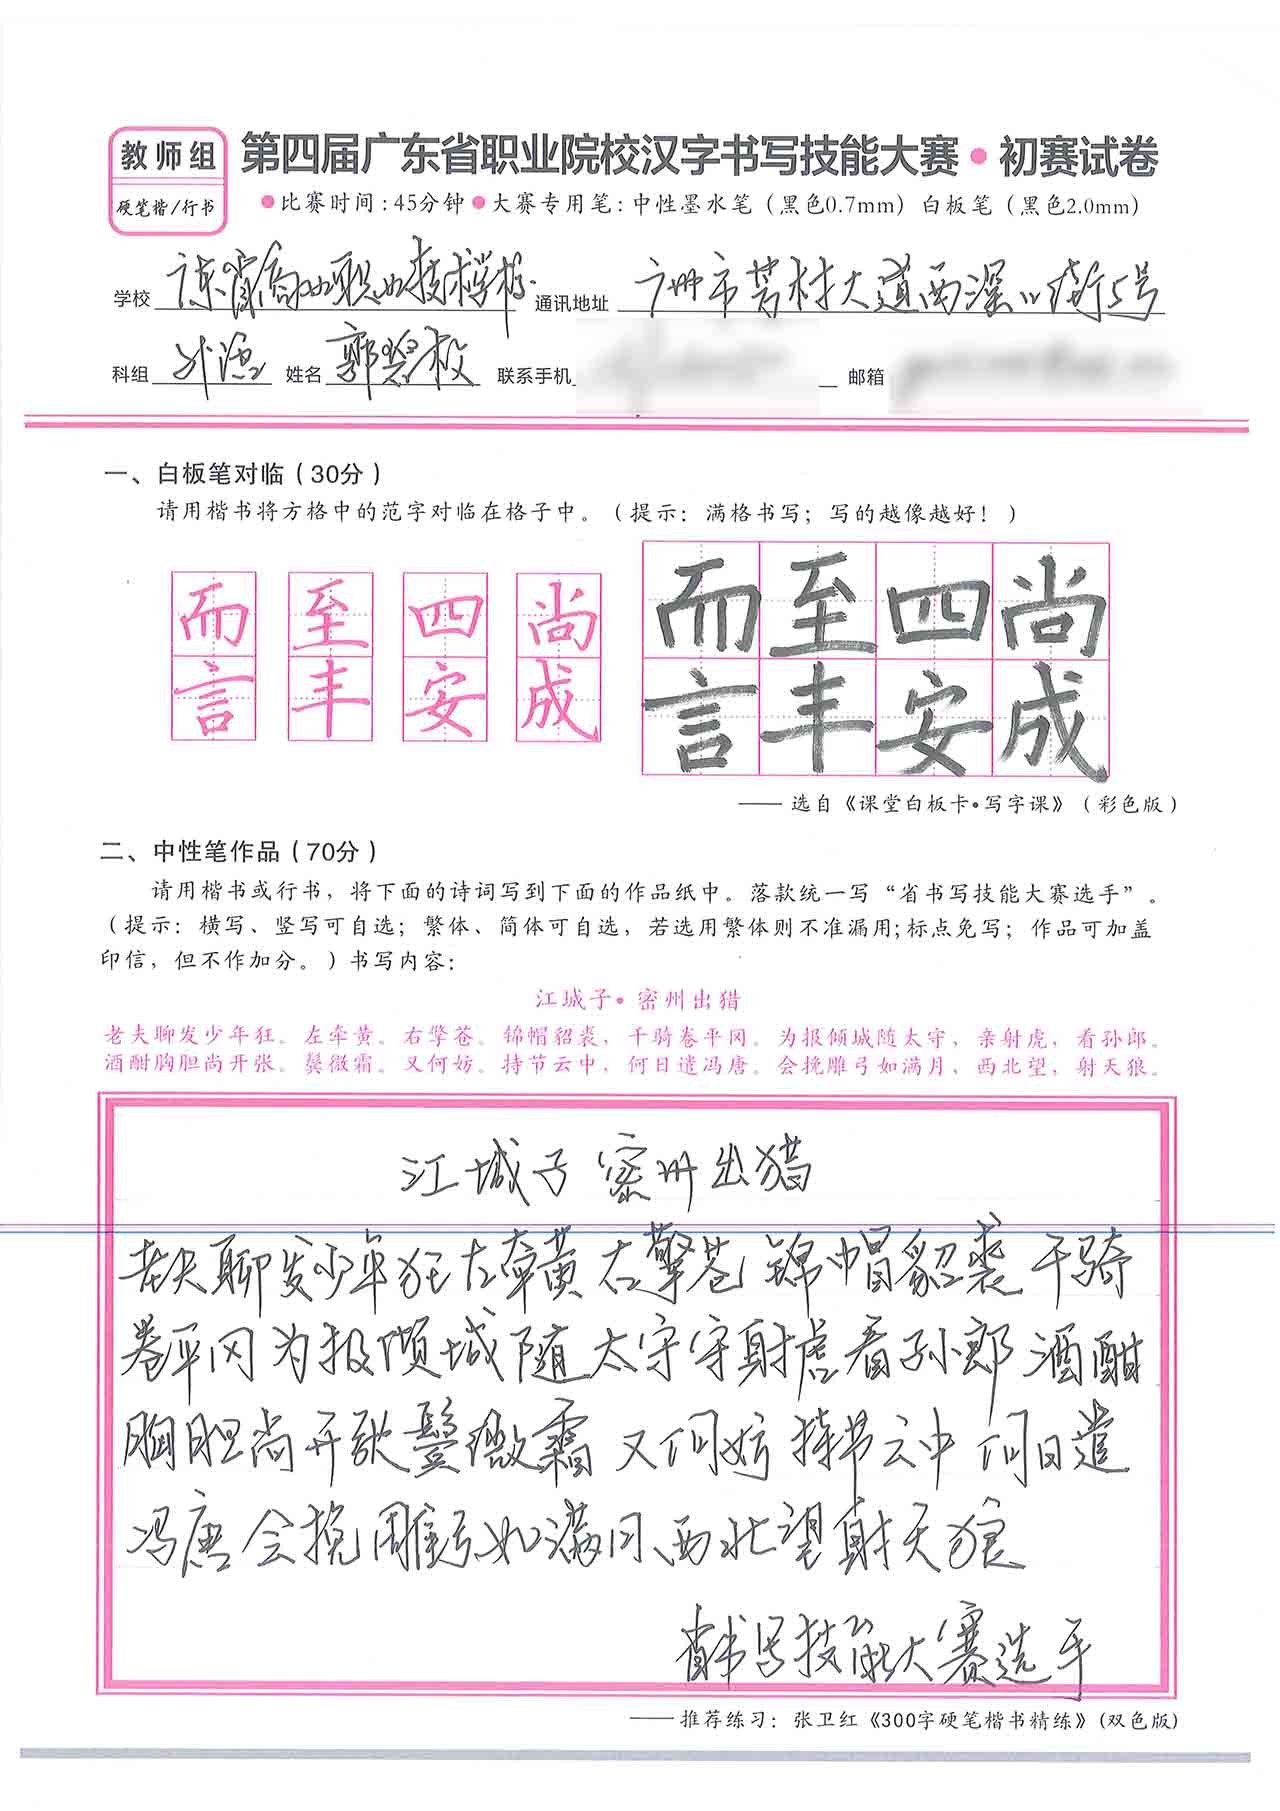 教师组
硬笔楷/行书
第四届广东省职业院校汉字书写技能大赛•初赛试卷
●比赛时间:45分钟●大赛专用笔:中性墨水笔（黑色0.7mm）白板笔（黑色2.0mm）
学校 广东省商业职业技术学校 通讯地址 广州市芳村大道西深
科组 外语 姓名 郭 联系手机 邮箱
一、白板笔对临（30分）
请用楷书将方格中的范字对临在格子中。（提示：满格书写；写的越像越好！）
而 至 四 尚 而至四尚
言 丰 安 成 言丰安成
——选自《课堂白板卡•写字课》（彩色版）
二、中性笔作品（70分）
请用楷书或行书，将下面的诗词写到下面的作品纸中。落款统一写“省书写技能大赛选手”。
（提示：横写、竖写可自选；繁体、简体可自选，若选用繁体则不准漏用;标点免写；作品可加盖
印信，但不作加分。）书写内容：
江城子•密州出猎
老夫聊发少年狂。左牵黄。右擎苍。锦帽貂裘，千骑卷平冈。为报倾城随太守，亲射虎，看孙郎。
酒酣胸胆尚开张。鬓微霜。又何妨。持节云中，何日遣冯唐。会挽雕弓如满月，西北望，射天狼。
江城子 密州出猎
老夫聊发少年狂左牵黄右擎苍锦帽貂裘千骑
卷平冈为报倾城随太守守射虎看孙郎酒酣
胸胆尚开张鬓微霜又何妨持节云中何日遣
冯唐会挽雕弓如满月西北望射天狼
省书写技能大赛选手
——推荐练习：张卫红《300字硬笔楷书精练》(双色版)